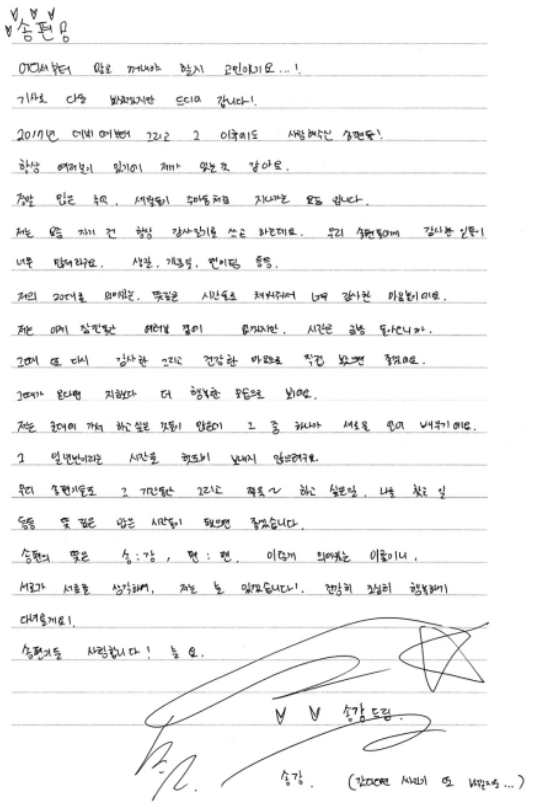 송편🫶
어디서부터 말을 꺼내야 할지 고민이네요...!
기사로 다들 봤겠지만 드디어 갑니다!
2017년 데뷔 때부터 그리고 그 이후에도 사랑해주신 송편들!
항상 여러분이 있기에 제가 있는 것 같아요.
정말 많은 추억, 세월들이 주마등처럼 지나가는 요즘 입니다.
저는 요즘 자기 전 항상 감사일기를 쓰고 하는데요. 우리 송편들에게 감사한 일들이
너무 많더라구요. 생일, 개추럴, 팬미팅 등등.
저의 20대를 의미있는, 뜻깊은 시간들로 채워주셔서 너무 감사한 마음뿐이에요.
저는 이제 잠깐동안 여러분 곁에 없겠지만, 시간은 금방 돌아오니까.
그때 또 다시 감사한 그리고 건강한 마음으로 직접 봤으면 좋겠어요.
그때가 온다면 지금보다 더 행복한 모습으로 봐요.
저는 군대에 가서 하고싶은 것들이 많은데 그 중 하나가 새로운 언어 배우기에요.
그 일년반이라는 시간을 헛되이 보내지 않으려구요.
우리 송편이들도 그 기간동안 그리고 쭉~ 하고 싶은일, 나를 찾는 일
등등 뜻 깊은 많은 시간들이 됐으면 좋겠습니다.
송편의 뜻은 송:강, 편:편. 이렇게 의미있는 이름이니,
서로가 서로를 생각하며, 저는 늘 있겠습니다! 건강히 조심히 행복하게
다녀올게요!
송편이들 사랑합니다! 늘 요.
송강드림.
송강. (갔다오면 싸인이 또 바뀔지도...)